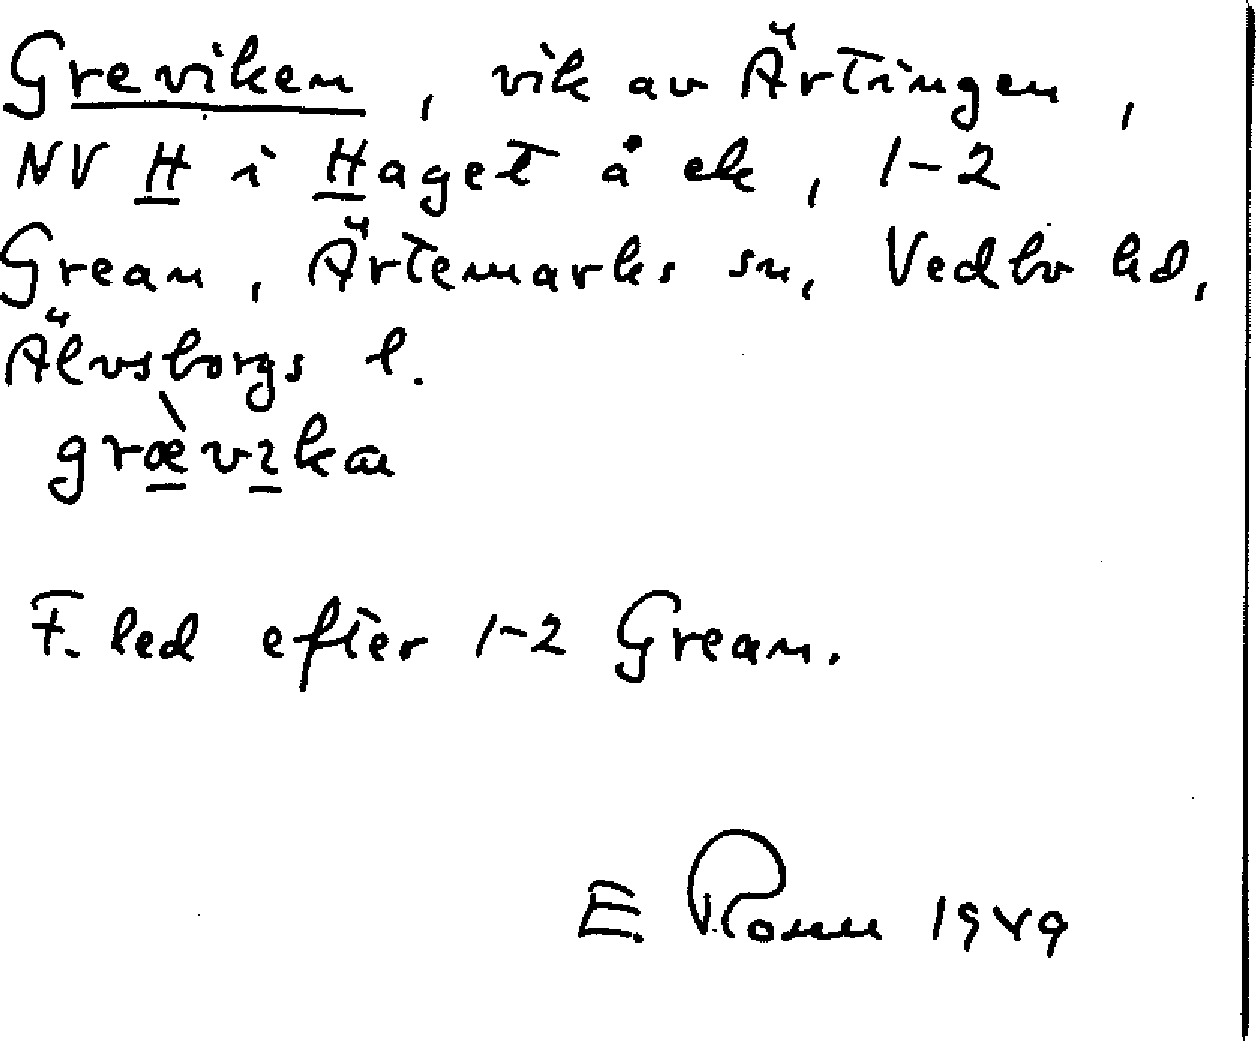 Greviken, vik av Ärtingen,
NV H i Haget å ek, 1-2
Grean, Ärtemarks sn, Vedbo hd,
Älvsborgs l.
græ̀vɩka
F. led efter 1-2 Grean.
E. Rosen 1949